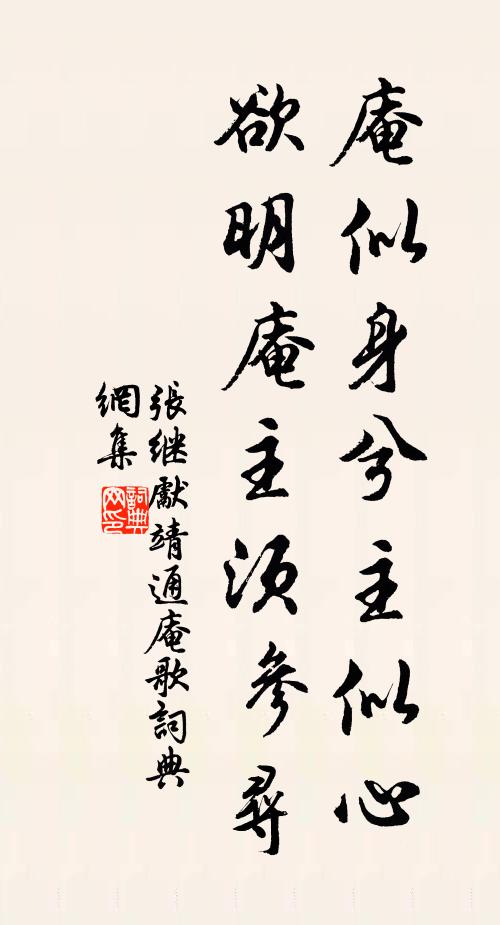 庵似身兮主似心
欲明庵主須參尋
張继獻靖通庵歌詞典
網集
詞典
网印